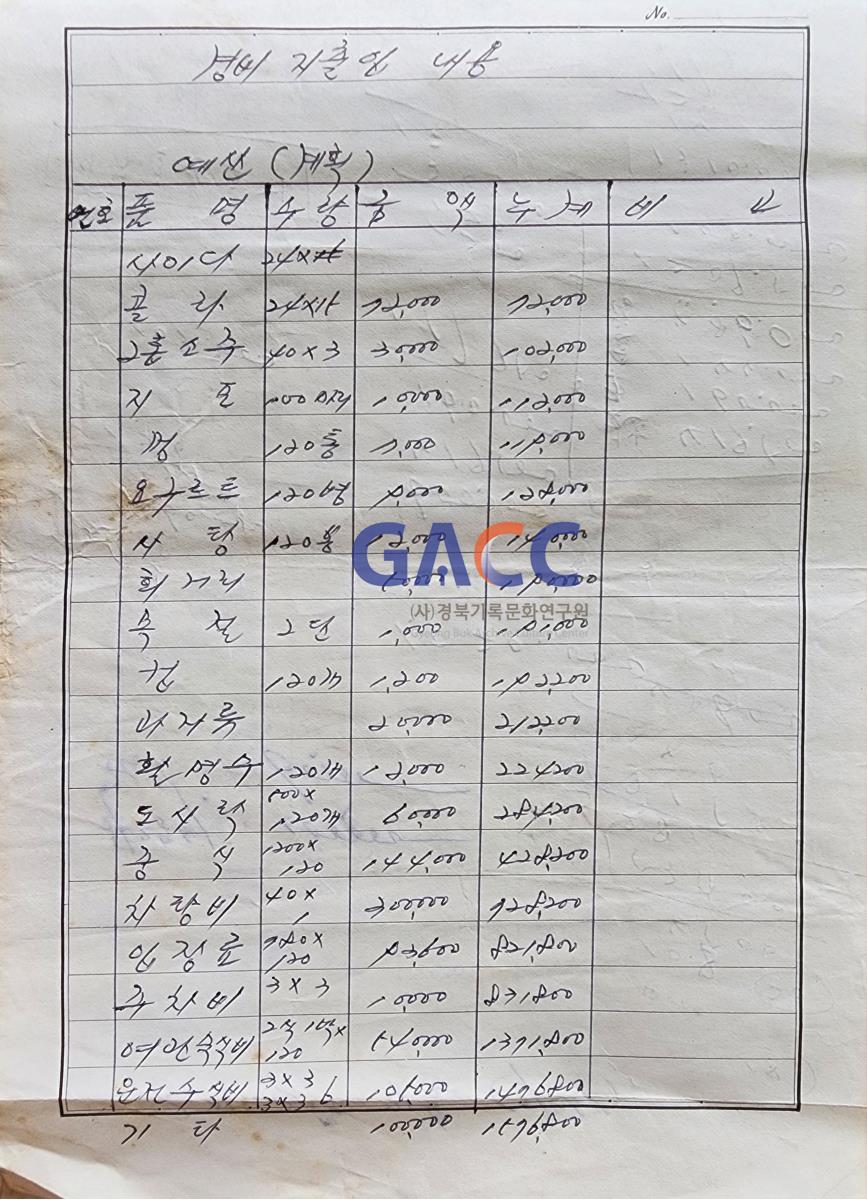 No.
경비 지출입 내용
예산 (계획)
번호 품명 수량 금액 누계 비고
사이다
콜라 72,000 72,000
2홉소주 40×3 30,000 102,000
지포 100마리 10,000 112,000
껌 120통 7,000 119,000
요구르트 120병 9,000 128,000
사탕 120봉 12,000 140,000
GACC
회거리 50,000 190,000
(사)경북기록문화연구원
2단 1,000 191,000
컵 120개 1,200 192,200
과자류 20,000 212,200
활명수 120개 12,000 224,200
도시락 500× 120개 60,000 284,200
중식 1200× 120 144,000 428,200
차량비 40× 1 300,000 728,200
입장료 780× 120 93,600 821,800
주차비 3×3 10,000 831,800
여관숙식비 2식1박× 120 540,000 1371,800
운전수식비 3×3 3×36 105,000 1476,800
기타 100,000 1576,800